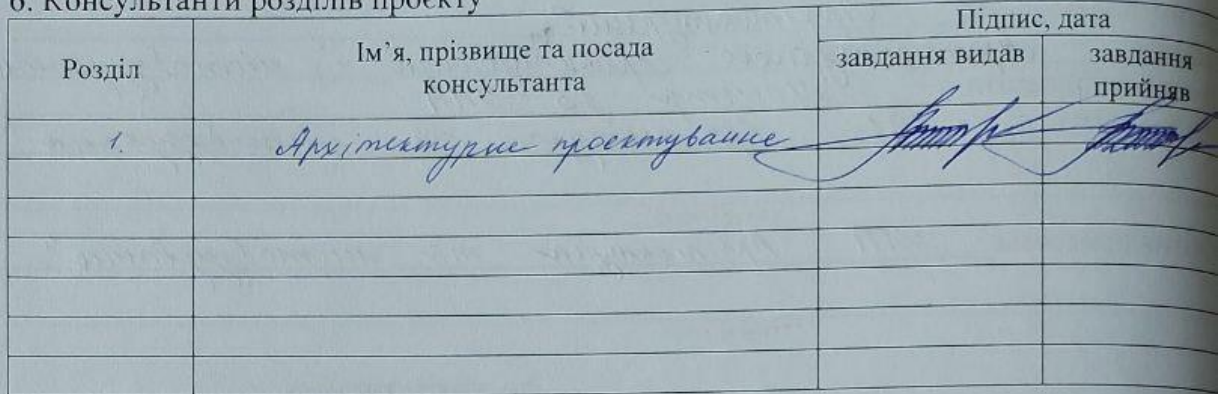 6. Консультанти розділів проєкту
Розділ
Ім’я, прізвище та посада
консультанта
Підпис, дата
завдання видав
завдання
прийняв
1.
Архітектурне проєктування